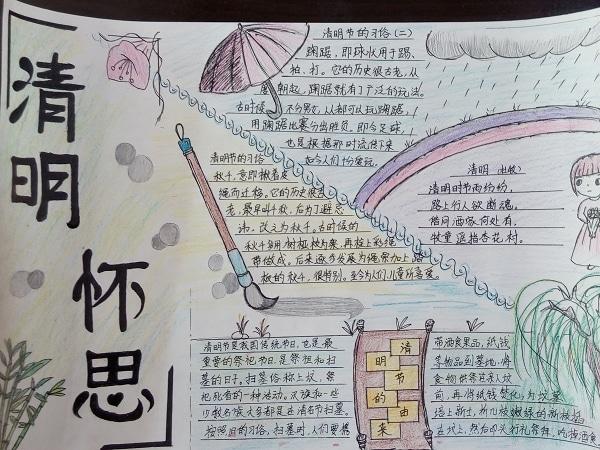 清明
怀思
清明节的习俗(二)
蹴踘,即球状用于踢、
拍、打。它的历史很古老,从
朝起,蹴踘就有了广泛的玩法。
古时候,不分男女,人都可以玩蹴踘,
用蹴踘比赛分出胜负,即今足球,
也是根据那时流传下来
如今人们十分爱玩。
清明节的习俗
秋千,意即揪着皮
绳而迁移。它的历史很古
老,最早叫千秋,后为了避忌
讳,改之为秋千。古时候的
秋千多用树桠枝为架,再栓上彩绳
带做成。后来逐步发展为绳索加上踏
板的秋千,很特别。至今为人们儿童所喜爱。
清明
清明时节雨纷纷,
路上行人欲断魂。
借问酒家何处有,
牧童遥指杏花村。
清明节是我国传统节日,也是最
重要的祭祀节日,是祭祖和扫
墓的日子。扫墓俗称上坟,祭
祀死者的一种活动。汉族和一些
少数名族大多都是在清明节扫墓。
按照旧的习俗,扫墓时,人们要携
清明节的由来
带酒食果品、纸钱
等物品到墓地,将
食物供祭在亲人坟
前,再将纸钱焚化,为坟墓
培上新土,折几枝嫩绿的新枝插
在坟上,然后叩头行礼祭拜,吃掉酒食